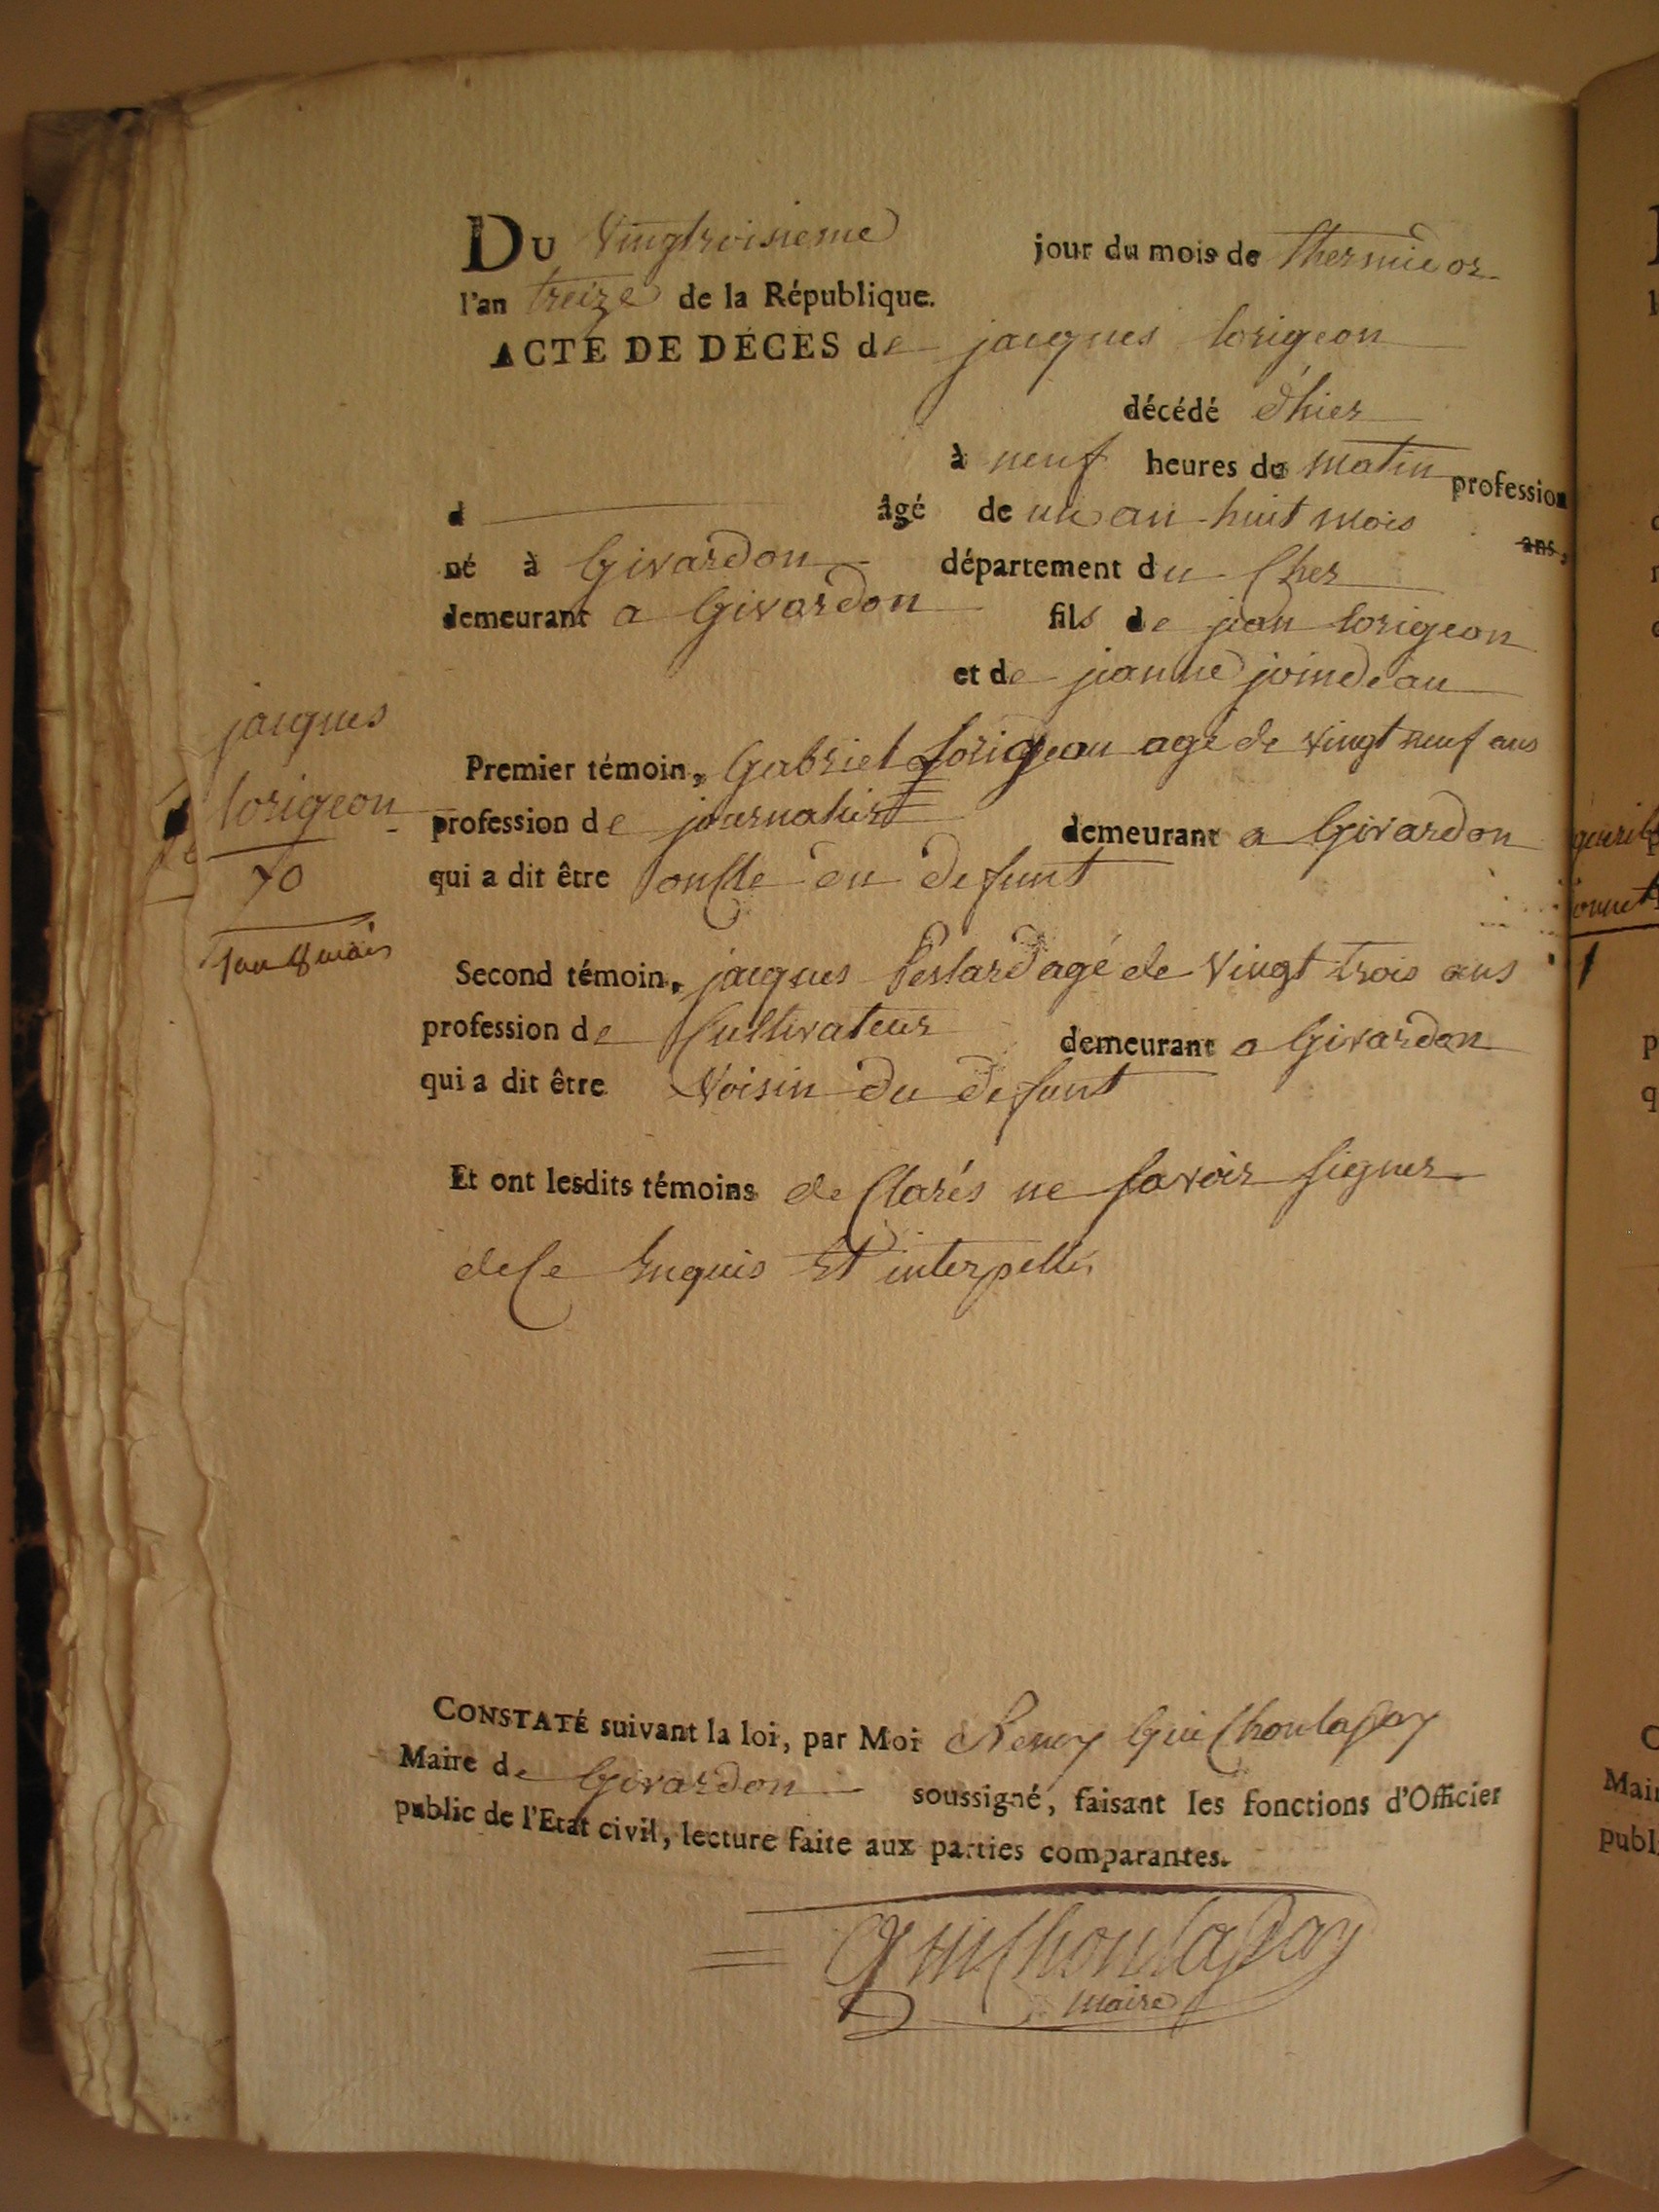 DU vingtroisieme jour du mois de thermidor
l'an treize de la République.
ACTE DE DÉCÈS de jacques lorigeon
décédé d'hier
à neuf heures du matin profession
d âgé de un an huit mois ans,
né à Givardon département du Cher
demeurant a Givardon fils de jean lorigeon
et de jeanne joindeau
jacques
lorigeon
70
1 an 8 mois
Premier témoin, Gabriel lorigeon agé de vingt neuf ans
profession de journalier demeurant a Givardon
qui a dit être loncle du defunt
Second témoin, jacques agé de vingt trois ans
profession de Cultivateur demeurant a Givardon
qui a dit être voisin du defunt
Et ont lesdits témoins declarés ne savoir signer
dece enquis et interpellé
CONSTATÉ suivant la loi, par Moi
Maire de Givardon soussigné, faisant les fonctions d'Officier
public de l'Etat civil, lecture faite aux parties comparantes.
maire